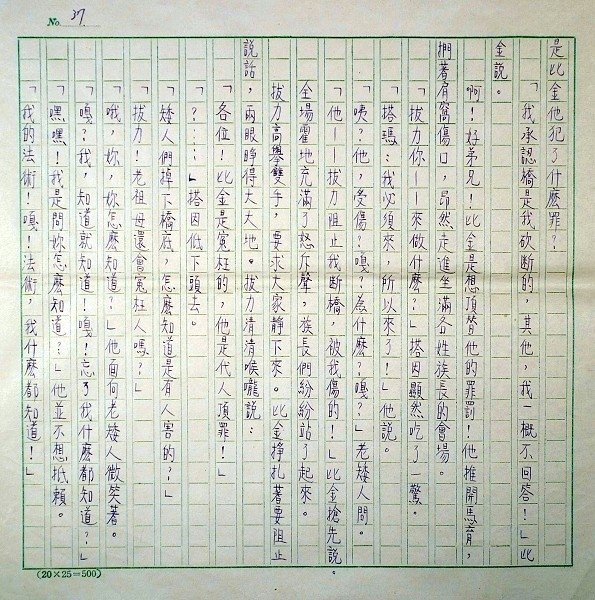 No. 37
是比金他犯了什麼罪？
「我承認橋是我砍斷的，其他，我一概不回答！」比
金說。
啊！好弟兄！比金是想頂替他的罪罰！他推開馬育，
捫著肩窩傷口，昂然走進坐滿各姓族長的會場。
「拔力你——來做什麼？！」搭因顯然吃了一驚。
「搭瑪：我必須來，所以來了！」他說。
「咦？他，受傷？嘎？為什麼？嘎？」老矮人問。
「他——拔力阻止我斷橋，被我傷的！」比金搶先說。
全場霍地充滿了怒斥聲，族長們紛紛站了起來。
拔力高舉雙手，要求大家靜下來。比金掙扎著要阻止
說話，兩眼睜得大大地。拔力清清喉嚨說：
「各位！比金是冤枉的，他是代人頂罪！」
「？……」搭因低下頭去。
「矮人們掉下橋底，怎麼知道是有人害的？」
「拔力！老祖母還會冤枉人嗎？」
「哦，妳，妳怎麼知道？」他面向老矮人微笑著。
「嘎？我，知道就知道！嘎！忘了我什麼都知道？」
「嘿嘿！我是問妳怎麼知道？」他並不想抵賴。
「我的法術！嘎！法術，我什麼都知道！」
(20×25=500)